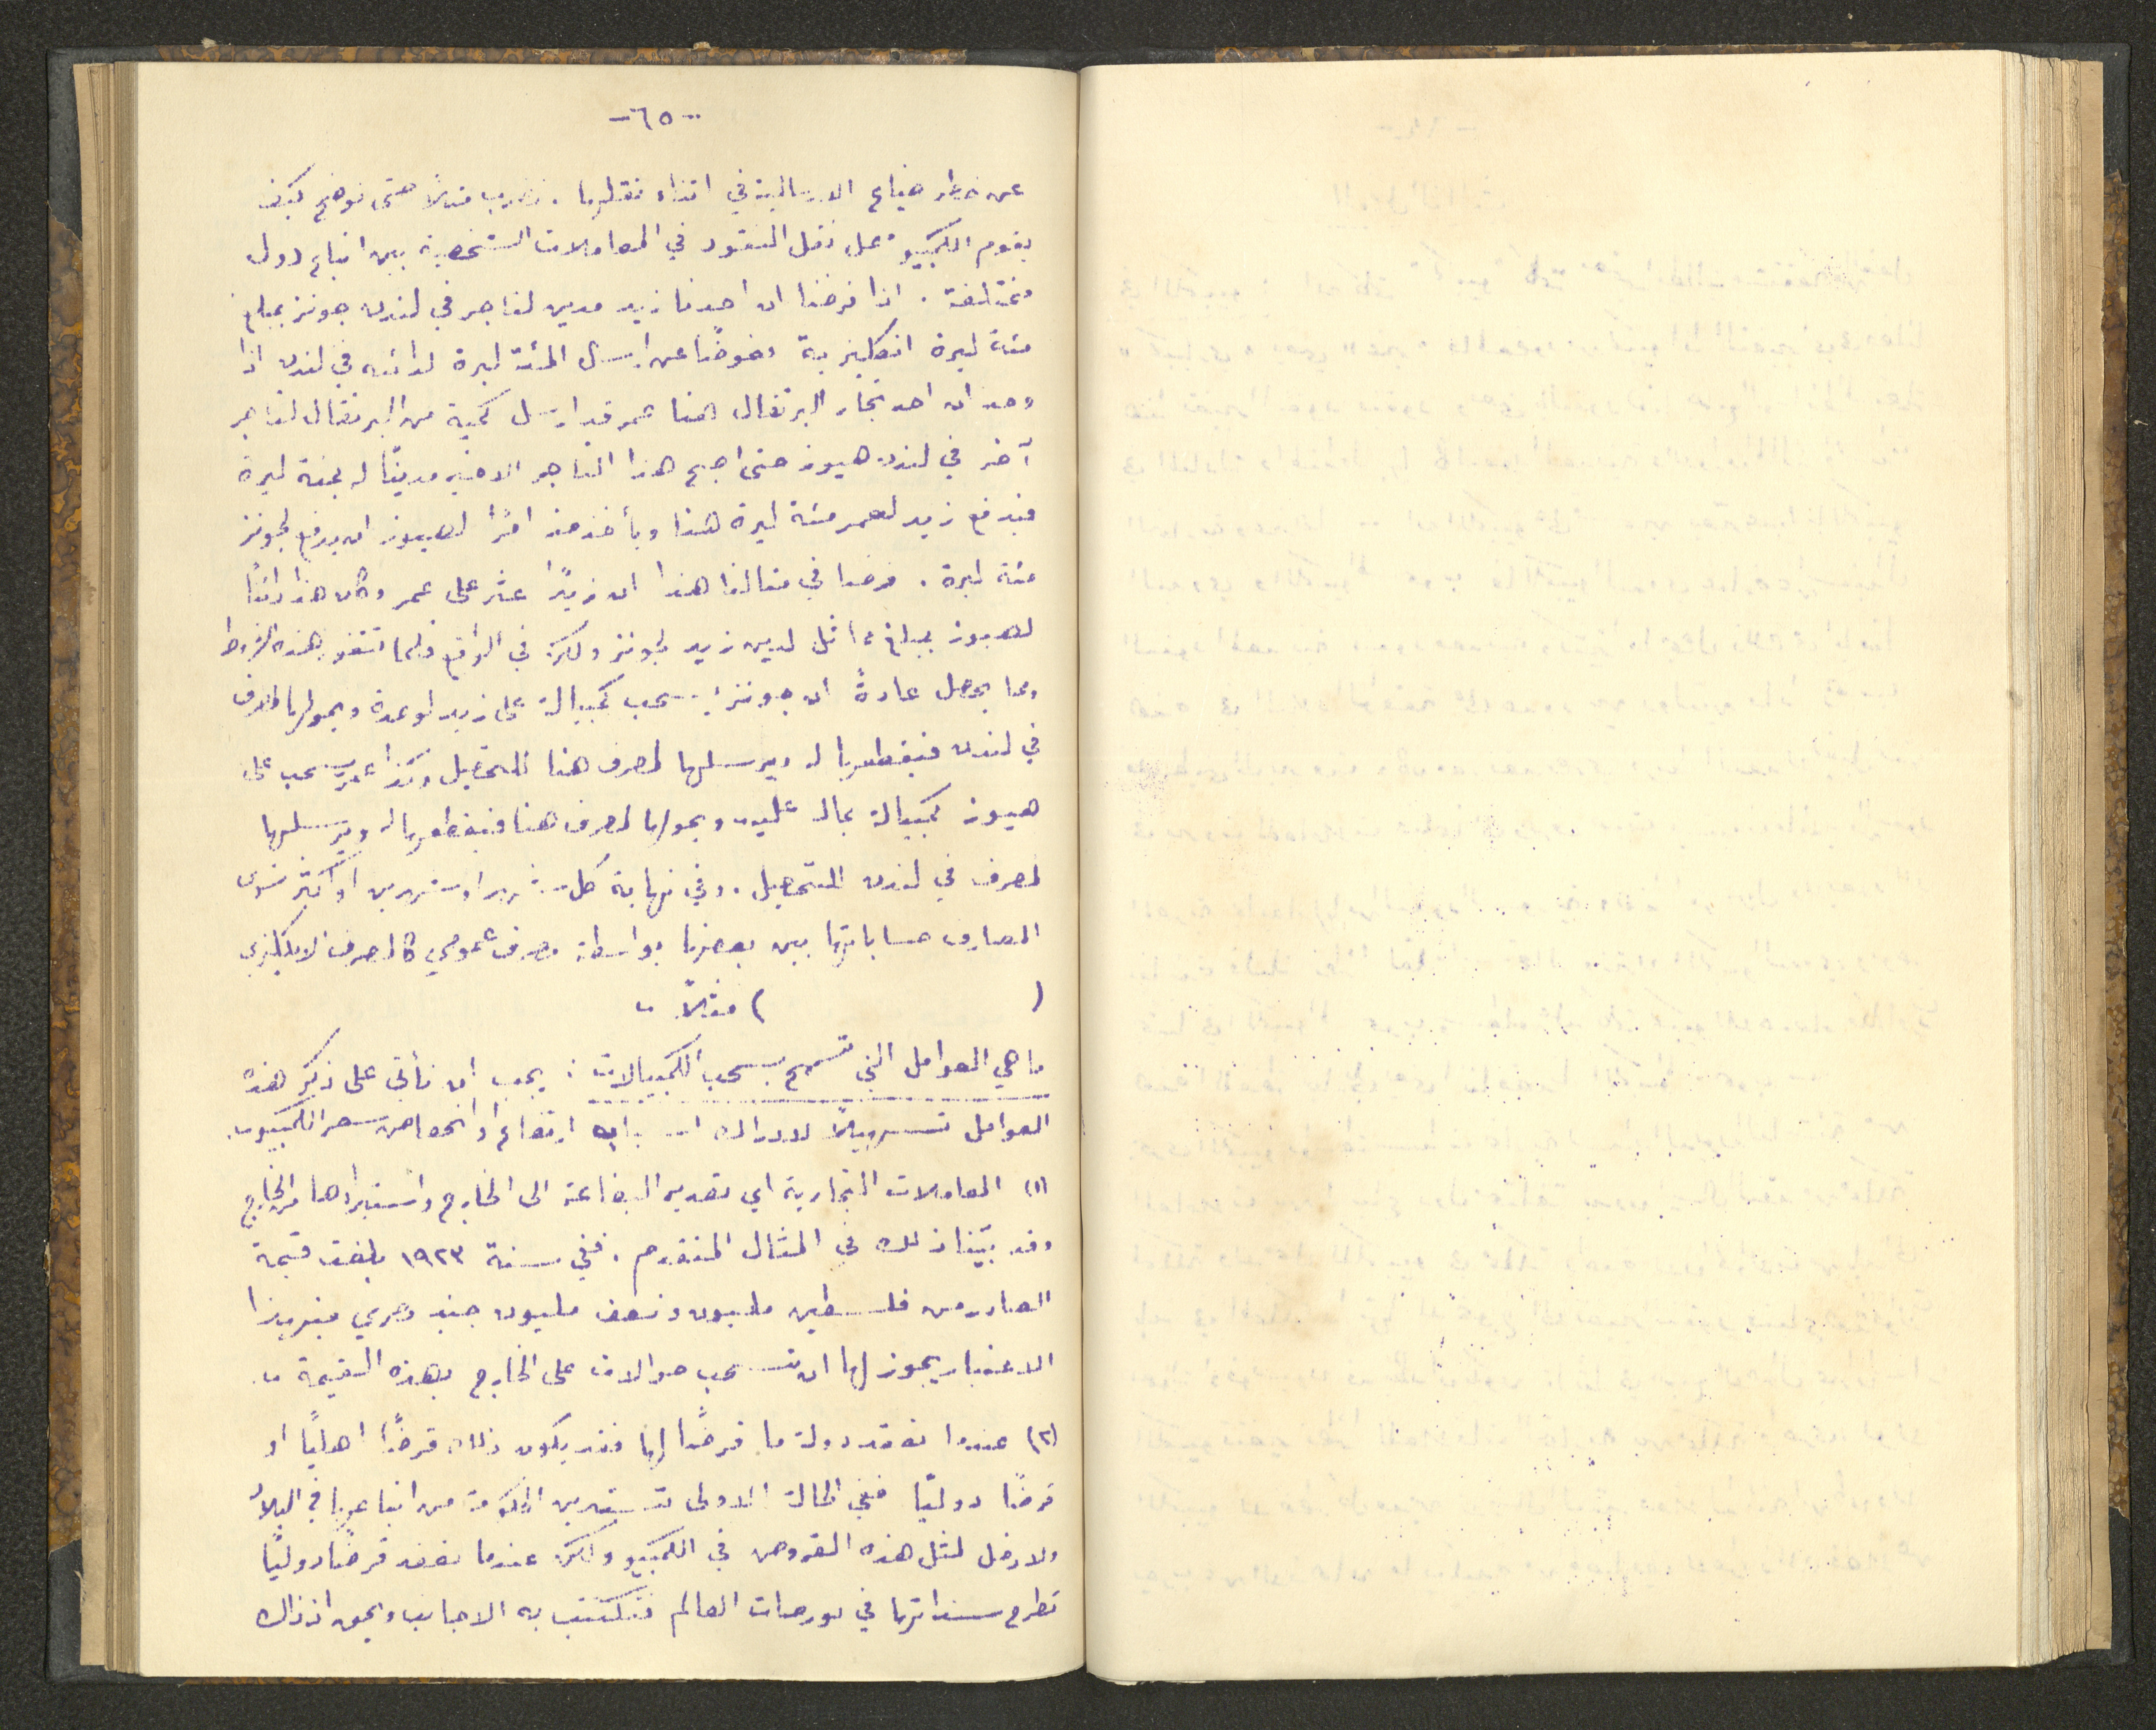 -٦٥-
عن خطر ضياع الارسالية في اثناء نقلها. نضرب مثلاً حتى نوضح كيف
يقوم الكمبيو محل نقل النقود في المعاملات الشخصية بين اتباع دول
مختلفة. اذا فرضنا ان احدنا زيد مدين لتاجر في لندن جونز بمبلغ
مئة ليرة انكليزية وعوضًا عن ارسال المئة ليرة لدائنه في لندن اذا
وجد ان احد تجار البرتقال هنا عمر قد ارسل كمية من البرتقال لتاجر
آخر في لندن هيوز حتى اصبح هذا التاجر الاخير مدينًا له بمئة ليرة
فيدفع زيد لعمر مئة ليرة هنا ويأخذ منه امرًا لهيوز ان يدفع لجونز
مئة ليرة. فرضنا في مثالنا هذا ان زيدًا عثر على عمر وكان هذا دائنًا
لهيوز بمبلغ مماثل لدين زيد لجونز ولكن في الواقع قلما تتفق هذه الشروط
ومما يحصل عادةً ان جونز يسحب كمبيالة على زيد لوعدة ويحولها لمصرف
في لندن فيقطعها له ويرسلها لمصرف هنا للتحصيل وكذا عمر يسحب على
هيوز كمبيالة بماله عليه ويحولها لمصرف هنا فيقطعها له ويرسلها
لمصرف في لندن للتحصيل. وفي نهاية كل شهر او شهرين او اكثر تسوى
المصارف حساباتها بين بعضها بواسطة مصرف عمومي كالمصرف الانكليزي
( ) مثلاً..
ما هي العوامل التي تسمح بسحب الكمبيالات: يجب ان نأتي على ذكر هذه
العوامل تسهيلاً لادراك اسباب ارتفاع وانخفاض سعر الكمبيو..
(١) المعاملات التجارية اي تصدير البضاعة الى الخارج واستيرادها من الخارج
وقد بيّنا ذلك في المثال المتقدم. ففي سنة ١٩٢٣ بلغت قيمة
الصادر من فلسطين مليون ونصف مليون جنيه مصري فبهذا
الاعتبار يجوز لها ان تسحب حوالات على الخارج بهذه القيمة..
(٢) عندما تعقد دولة ما قرضًا لها فقد يكون ذلك قرضًا اهليًا او
قرضًا دوليًا ففي الحالة الاولى تستدين الحكومة من اتباعها في البلاد
ولا دخل لمثل هذه القروض في الكمبيو ولكن عندما تعقد قرضًا دوليًا
تطرح سنداتها في بورصات العالم فتكتتب به الاجانب ويحق اذ ذاك